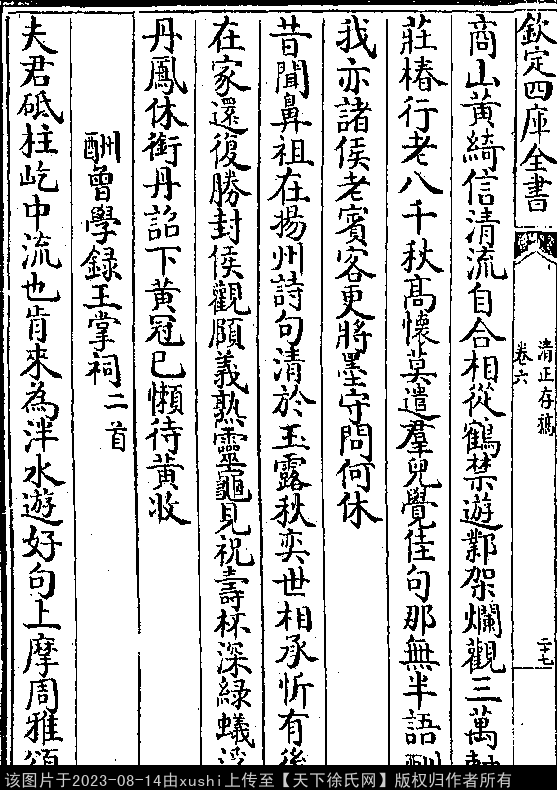 欽定四庫全書
清正存稿
卷六
二十七
商山黄綺信清流自合相從鶴禁遊鄴架爛觀三萬軸
莊椿行老八千秋髙懷莫遣羣兒覺佳句那無半語酬
我亦諸侯老賓客更將墨守問何休
昔聞鼻祖在揚州詩句清於玉露秋奕世相承忻有後
在家還復勝封侯觀頤義熟靈龜見祝壽杯深緑蟻浮
丹鳳休銜丹詔下黄冠已懶待黄收
酬曾學録王掌祠二首
夫君砥柱屹中流也肯來為泮水遊好句上摩周雅頌
该图片于2023-08-14由xushi上传至【天下徐氏网】版权归作者所有